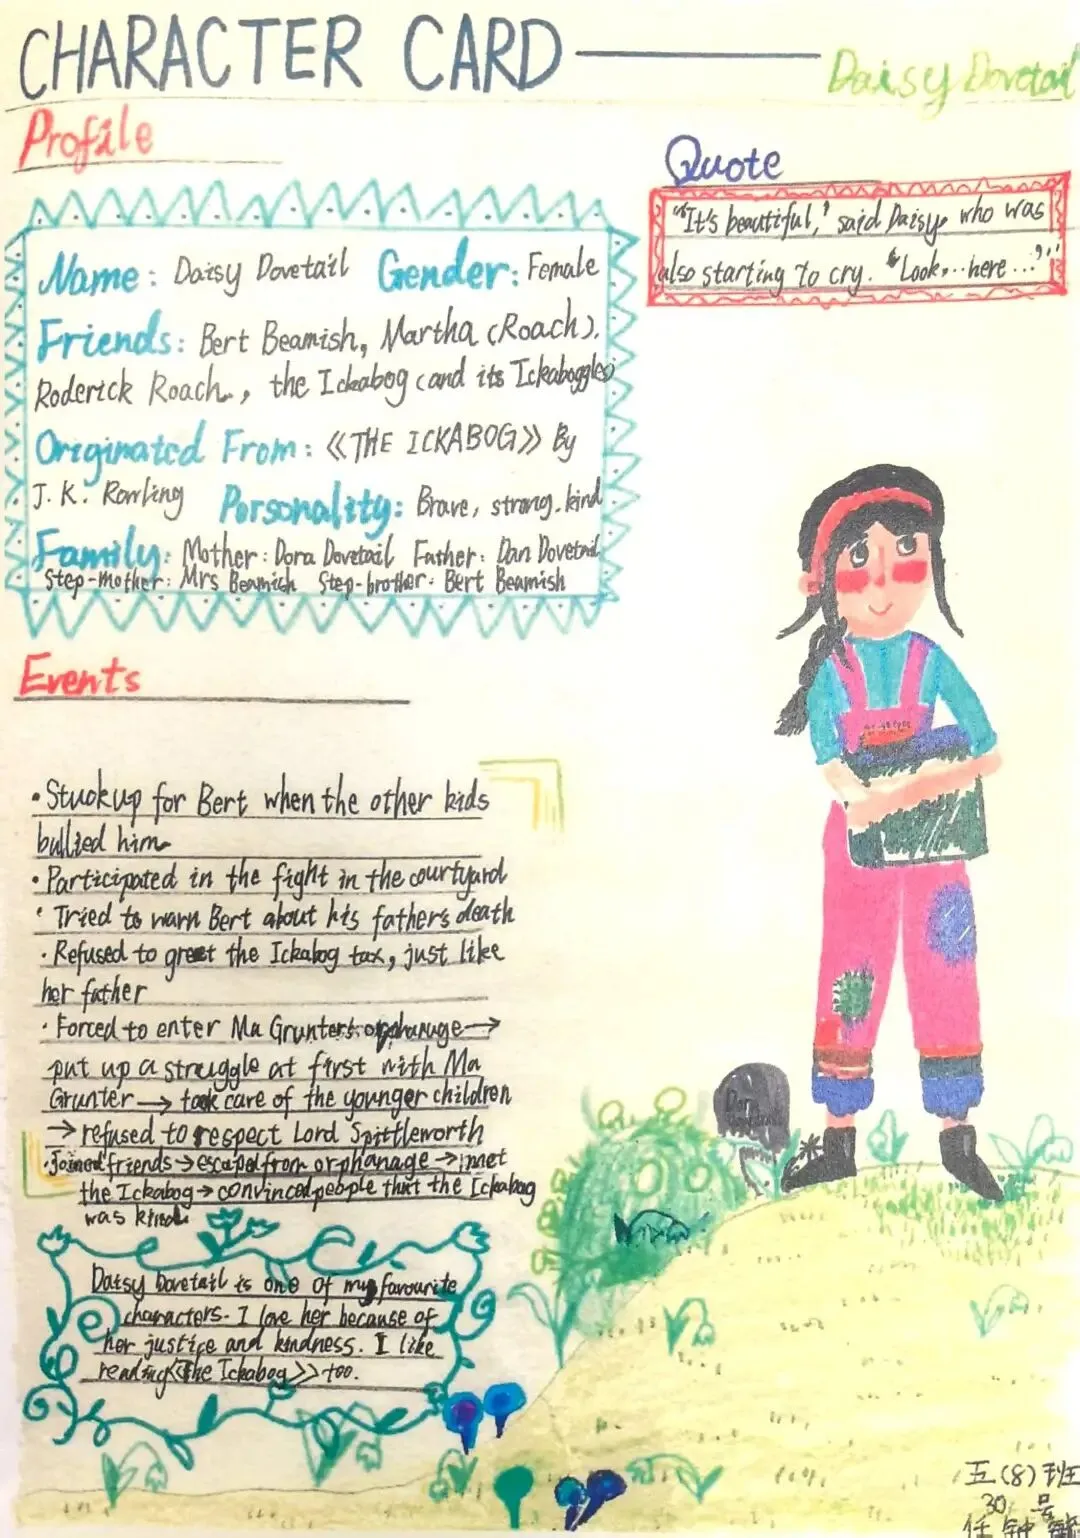 CHARACTER CARD — Daisy Dovetail
Profile
Name: Daisy Dovetail Gender: Female
Friends: Bert Beamish, Martha (Roach).
Roderick Roach., the Ickabog (and its Ickaboggles)
Originated From: 《THE ICKABOG》 By
J. K. Rowling Personality: Brave, strong, kind
Family: Mother: Dora Dovetail Father: Dan Dovetail
Step-mother: Mrs Beamish Step-brother: Bert Beamish
Quote
"It's beautiful,' said Daisy, who was
also starting to cry. "Look...here..."
Events
· Stuck up for Bert when the other kids
bullied him
· Participated in the fight in the courtyard
· Tried to warn Bert about his father's death
· Refused to greet the Ickabog tax, just like
her father
· Forced to enter Ma Grunter's orphanage →
put up a struggle at first with Ma
Grunter → took care of the younger children
→ refused to respect Lord Spittleworth
· Joined friends → escaped from orphanage → met
the Ickabog → convinced people that the Ickabog
was kind
Daisy Dovetail is one of my favourite
characters. I love her because of
her justice and kindness. I like
reading《The Ickabog》 too.
五(8)班
30 号
任钟